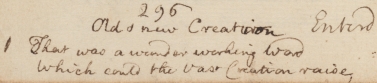 296
Old & new Creation Enterd
1 That was a wonder working Word
Which could the Vast Creation raise,